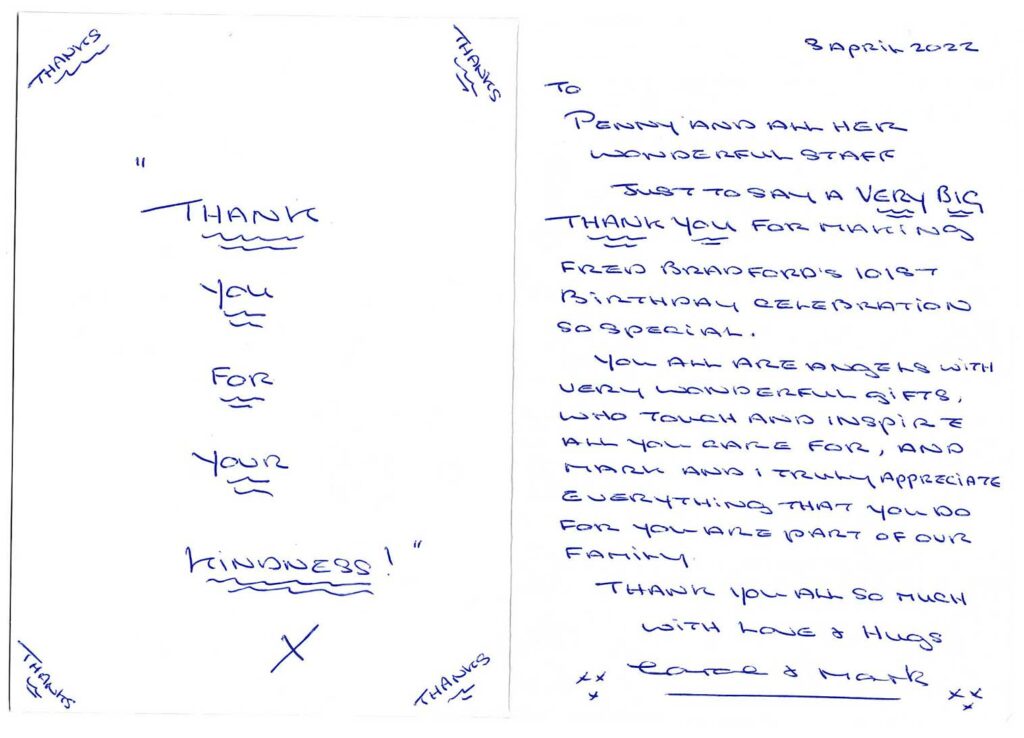 THANKS
THANKS
"
THANK
YOU
FOR
YOUR
KINDNESS!"
X
THANKS
THANKS
8 APRIL 2022
TO
PENNY AND ALL HER
WONDERFUL STAFF
JUST TO SAY A VERY BIG
THANK YOU FOR MAKING
FRED BRADFORD'S 101ST
BIRTHDAY CELEBRATION
SO SPECIAL.
YOU ALL ARE ANGELS WITH
VERY WONDERFUL GIFTS,
WHO TOUCH AND INSPIRE
ALL YOU CARE FOR, AND
MARK AND I TRULY APPRECIATE
EVERYTHING THAT YOU DO
FOR YOU ARE PART OF OUR
FAMILY.
THANK YOU ALL SO MUCH
WITH LOVE & HUGS
Carol & Mark
xxx xxx